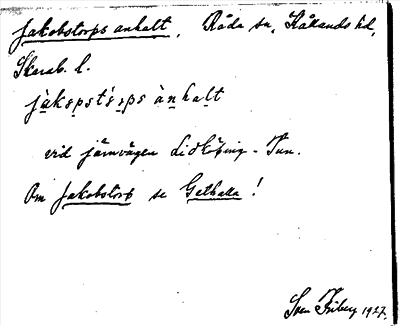 Jakobstorps anhalt, Råda sn, Kållands hd,
Skarab. l.
jàkǫpstǫ́rps ànhalt
vid järnvägen Lidköping - Tun.
Om Jakobstorp se Gethalla!
Sven Friberg 1927.